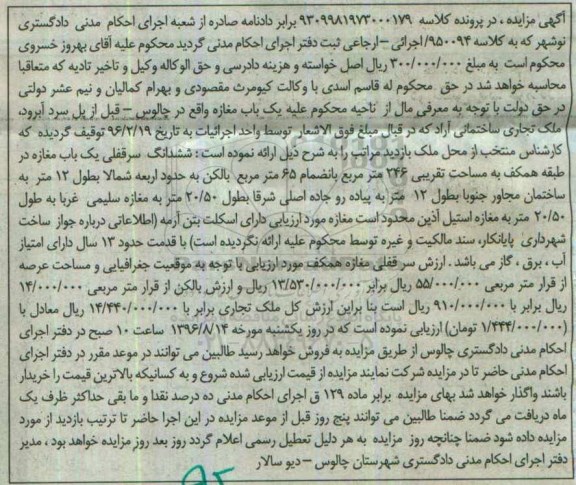 آگهی مزایده ، در پرونده کلاسه ۹۳۰۹۹۸۱۹۷۳۰۰۰۱۷۹ برابر دادنامه صادره از شعبه اجرای احکام مدنی دادگستری
نوشهر که به کلاسه ۹۵۰۰۹۴/ اجرائی –ارجاعی ثبت دفتر اجرای احکام مدنی گردید محکوم علیه آقای بهروز خسروی
محکوم است به مبلغ ۳۰۰/۰۰۰/۰۰۰ ریال اصل خواسته و هزینه دادرسی و حق الوکاله وکیل و تاخیر تادیه که متعاقبا
محاسبه خواهد شد در حق محکوم له قاسم اسدی با وکالت کیومرث مقصودی و بهرام کمالیان و نیم عشر دولتی
در حق دولت با توجه به معرفی مال از ناحیه محکوم علیه یک باب مغازه واقع در چالوس – قبل از پل سرد آبرود،
ملک تجاری ساختمانی آراد که در قبال مبلغ فوق الاشعار توسط واحد اجرائیات به تاریخ ۹۶/۲/۱۹ توقیف گردیده که
کارشناس منتخب از محل ملک بازدید مراتب را به شرح ذیل ارائه نموده است : ششدانگ سرقفلی یک باب مغازه در
طبقه همکف به مساحت تقریبی ۲۴۶ متر مربع بانضمام ۶۵ متر مربع بالکن به حدود اربعه شمالا بطول ۱۲ متر به
ساختمان مجاور جنوبا بطول ۱۲ متر به پیاده رو جاده اصلی شرقا بطول ۲۰/۵۰ متر به مغازه سلیمی غربا به طول
۲۰/۵۰ متر به مغازه استیل آذین محدود است مغازه مورد ارزیابی دارای اسکلت بتن آرمه (اطلاعاتی درباره جواز ساخت
شهرداری پایانکار، سند مالکیت و غیره توسط محکوم علیه ارائه نگردیده است) با قدمت حدود ۱۳ سال دارای امتیاز
آب ، برق ، گاز می باشد . ارزش سر قفلی مغازه همکف مورد ارزیابی با توجه به موقعیت جغرافیایی و مساحت عرصه
از قرار متر مربعی ۵۵/۰۰۰/۰۰۰ ریال برابر ۱۳/۵۳۰/۰۰۰/۰۰۰ ریال و ارزش بالکن از قرار متر مربعی ۱۴/۰۰۰/۰۰۰
ریال برابر با ۹۱۰/۰۰۰/۰۰۰ ریال است بنا براین ارزش کل ملک تجاری برابر با ۱۴/۴۴۰/۰۰۰/۰۰۰ ریال معادل با
(۱/۴۴۴/۰۰۰/۰۰۰ تومان) ارزیابی نموده است که در روز یکشنبه مورخه ۱۳۹۶/۸/۱۴ ساعت ۱۰ صبح در دفتر اجرای
احکام مدنی دادگستری چالوس از طریق مزایده به فروش خواهد رسید طالبین می توانند در موعد مقرر در دفتر اجرای
احکام مدنی حاضر تا در مزایده شرکت نمایند مزایده از قیمت ارزیابی شده شروع و به کسانیکه بالاترین قیمت را خریدار
باشند واگذار خواهد شد بهای مزایده برابر ماده ۱۲۹ ق اجرای احکام مدنی ده درصد نقدا و ما بقی حداکثر ظرف یک
ماه دریافت می گردد ضمنا طالبین می توانند پنج روز قبل از موعد مزایده در این اجرا حاضر تا ترتیب بازدید از مورد
مزایده داده شود ضمنا چنانچه روز مزایده به هر دلیل تعطیل رسمی اعلام گردد روز بعد روز مزایده خواهد بود ، مدیر
دفتر اجرای احکام مدنی دادگستری شهرستان چالوس – دیو سالار